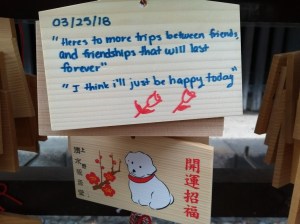 03/25/18
"Heres to more trips between friends,
and friendships that will last
forever"
"I think i'll just be happy today"
開運招福